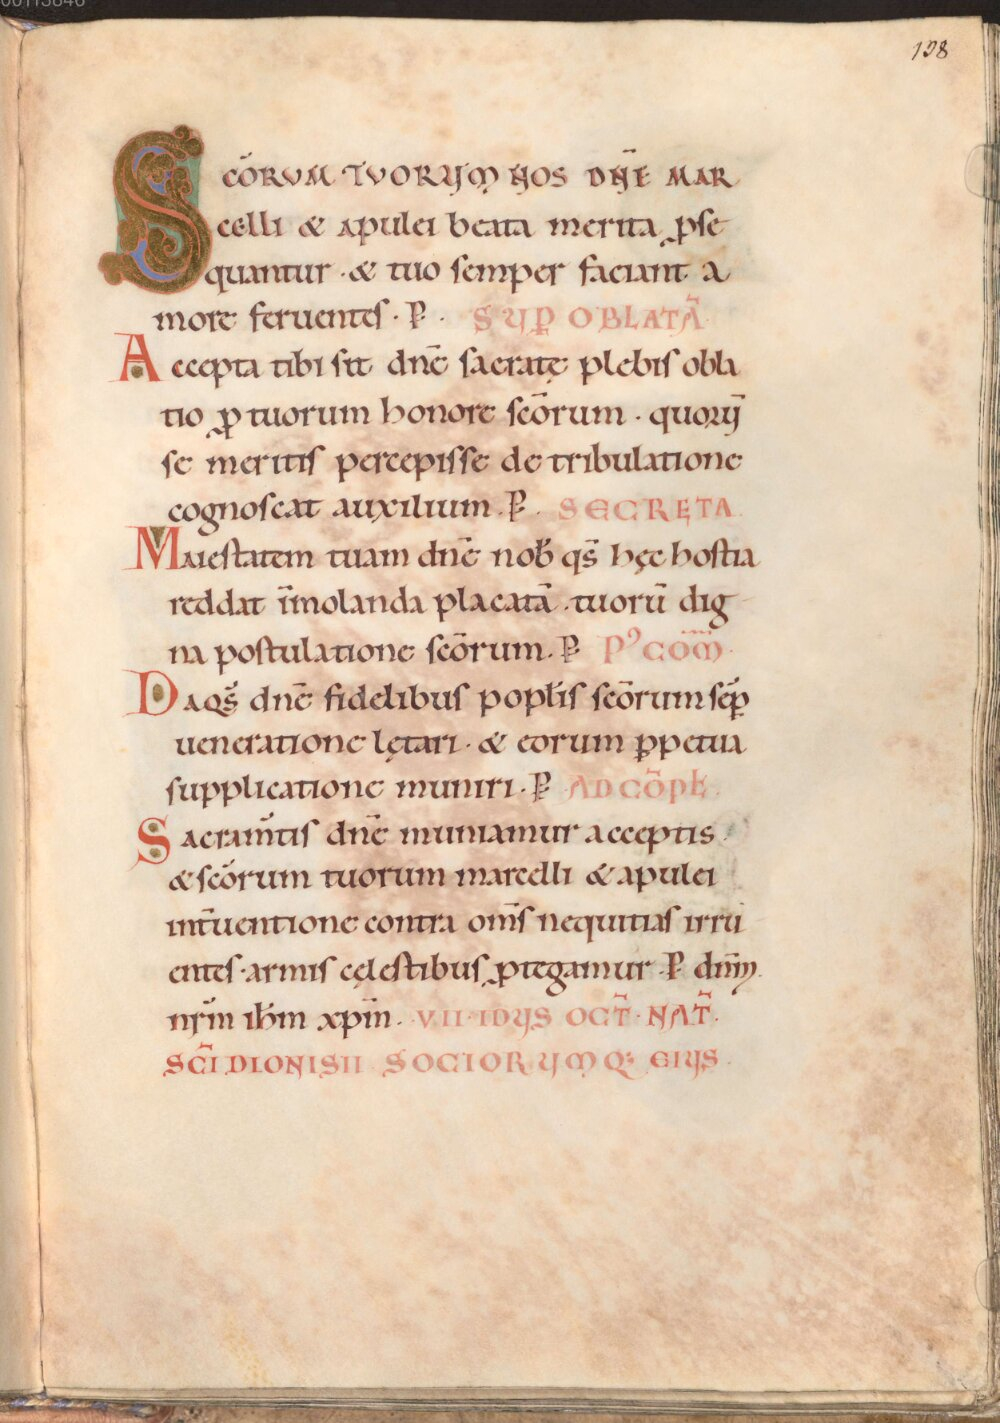 138
SCŌRUM TUORUM NOS DÑE MAR
celli & apulei beata merita ꝓse
quantur · & tuo semper faciant a
more feruentes · P · SUP OBLATĀ
Accepta tibi sit dñe sacratę plebis obla
tio ꝓ tuorum honore scōrum · quorū
se meritis percepisse de tribulatione
cognoscat auxilium · P · SECRETA
Maiestatem tuam dñe nob̄ qs̄ hęc hostia
reddat īmolanda placatā · tuorū dig
na postulatione scōrum · P PꝰCOM̄
Da qs̄ dñe fidelibus popl̄is scōrum sēp
ueneratione lętari · & eorum ꝑpetua
supplicatione muniri · P AD CŌPL̄
Sacram̄tis dñe muniamur acceptis ·
& scōrum tuorum marcelli & apulei
int̄uentione contra om̄s nequitias irru
entes · armis cęlestibus ꝓtegamur · P dn̄m
nr̄m ih̄m xp̄m · VII · IDUS OCT̄ · NAT̄ ·
SC̄I DIONISII SOCIORUMQ; EIUS ·